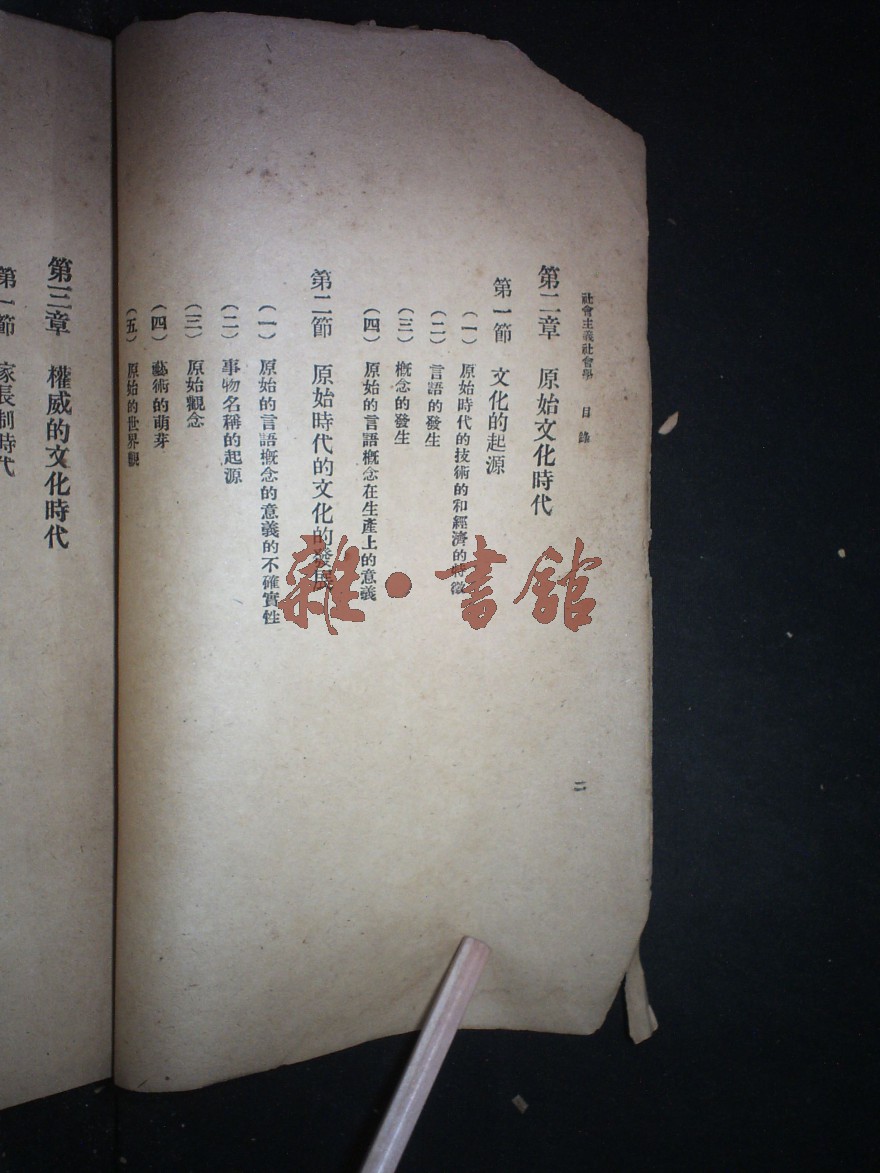 社會主義社會學 目錄
二
第二章 原始文化時代
第一節 文化的起源
(一) 原始時代的技術的和經濟的特徵
(二) 言語的發生
(三) 概念的發生
(四) 原始的言語概念在生產上的意義
第二節 原始時代的文化的發展
(一) 原始的言語概念的意義的不確實性
(二) 事物名稱的起源
(三) 原始觀念
(四) 藝術的萌芽
(五) 原始的世界觀
第三章 權威的文化時代
第一節 家長制時代
雜·書館